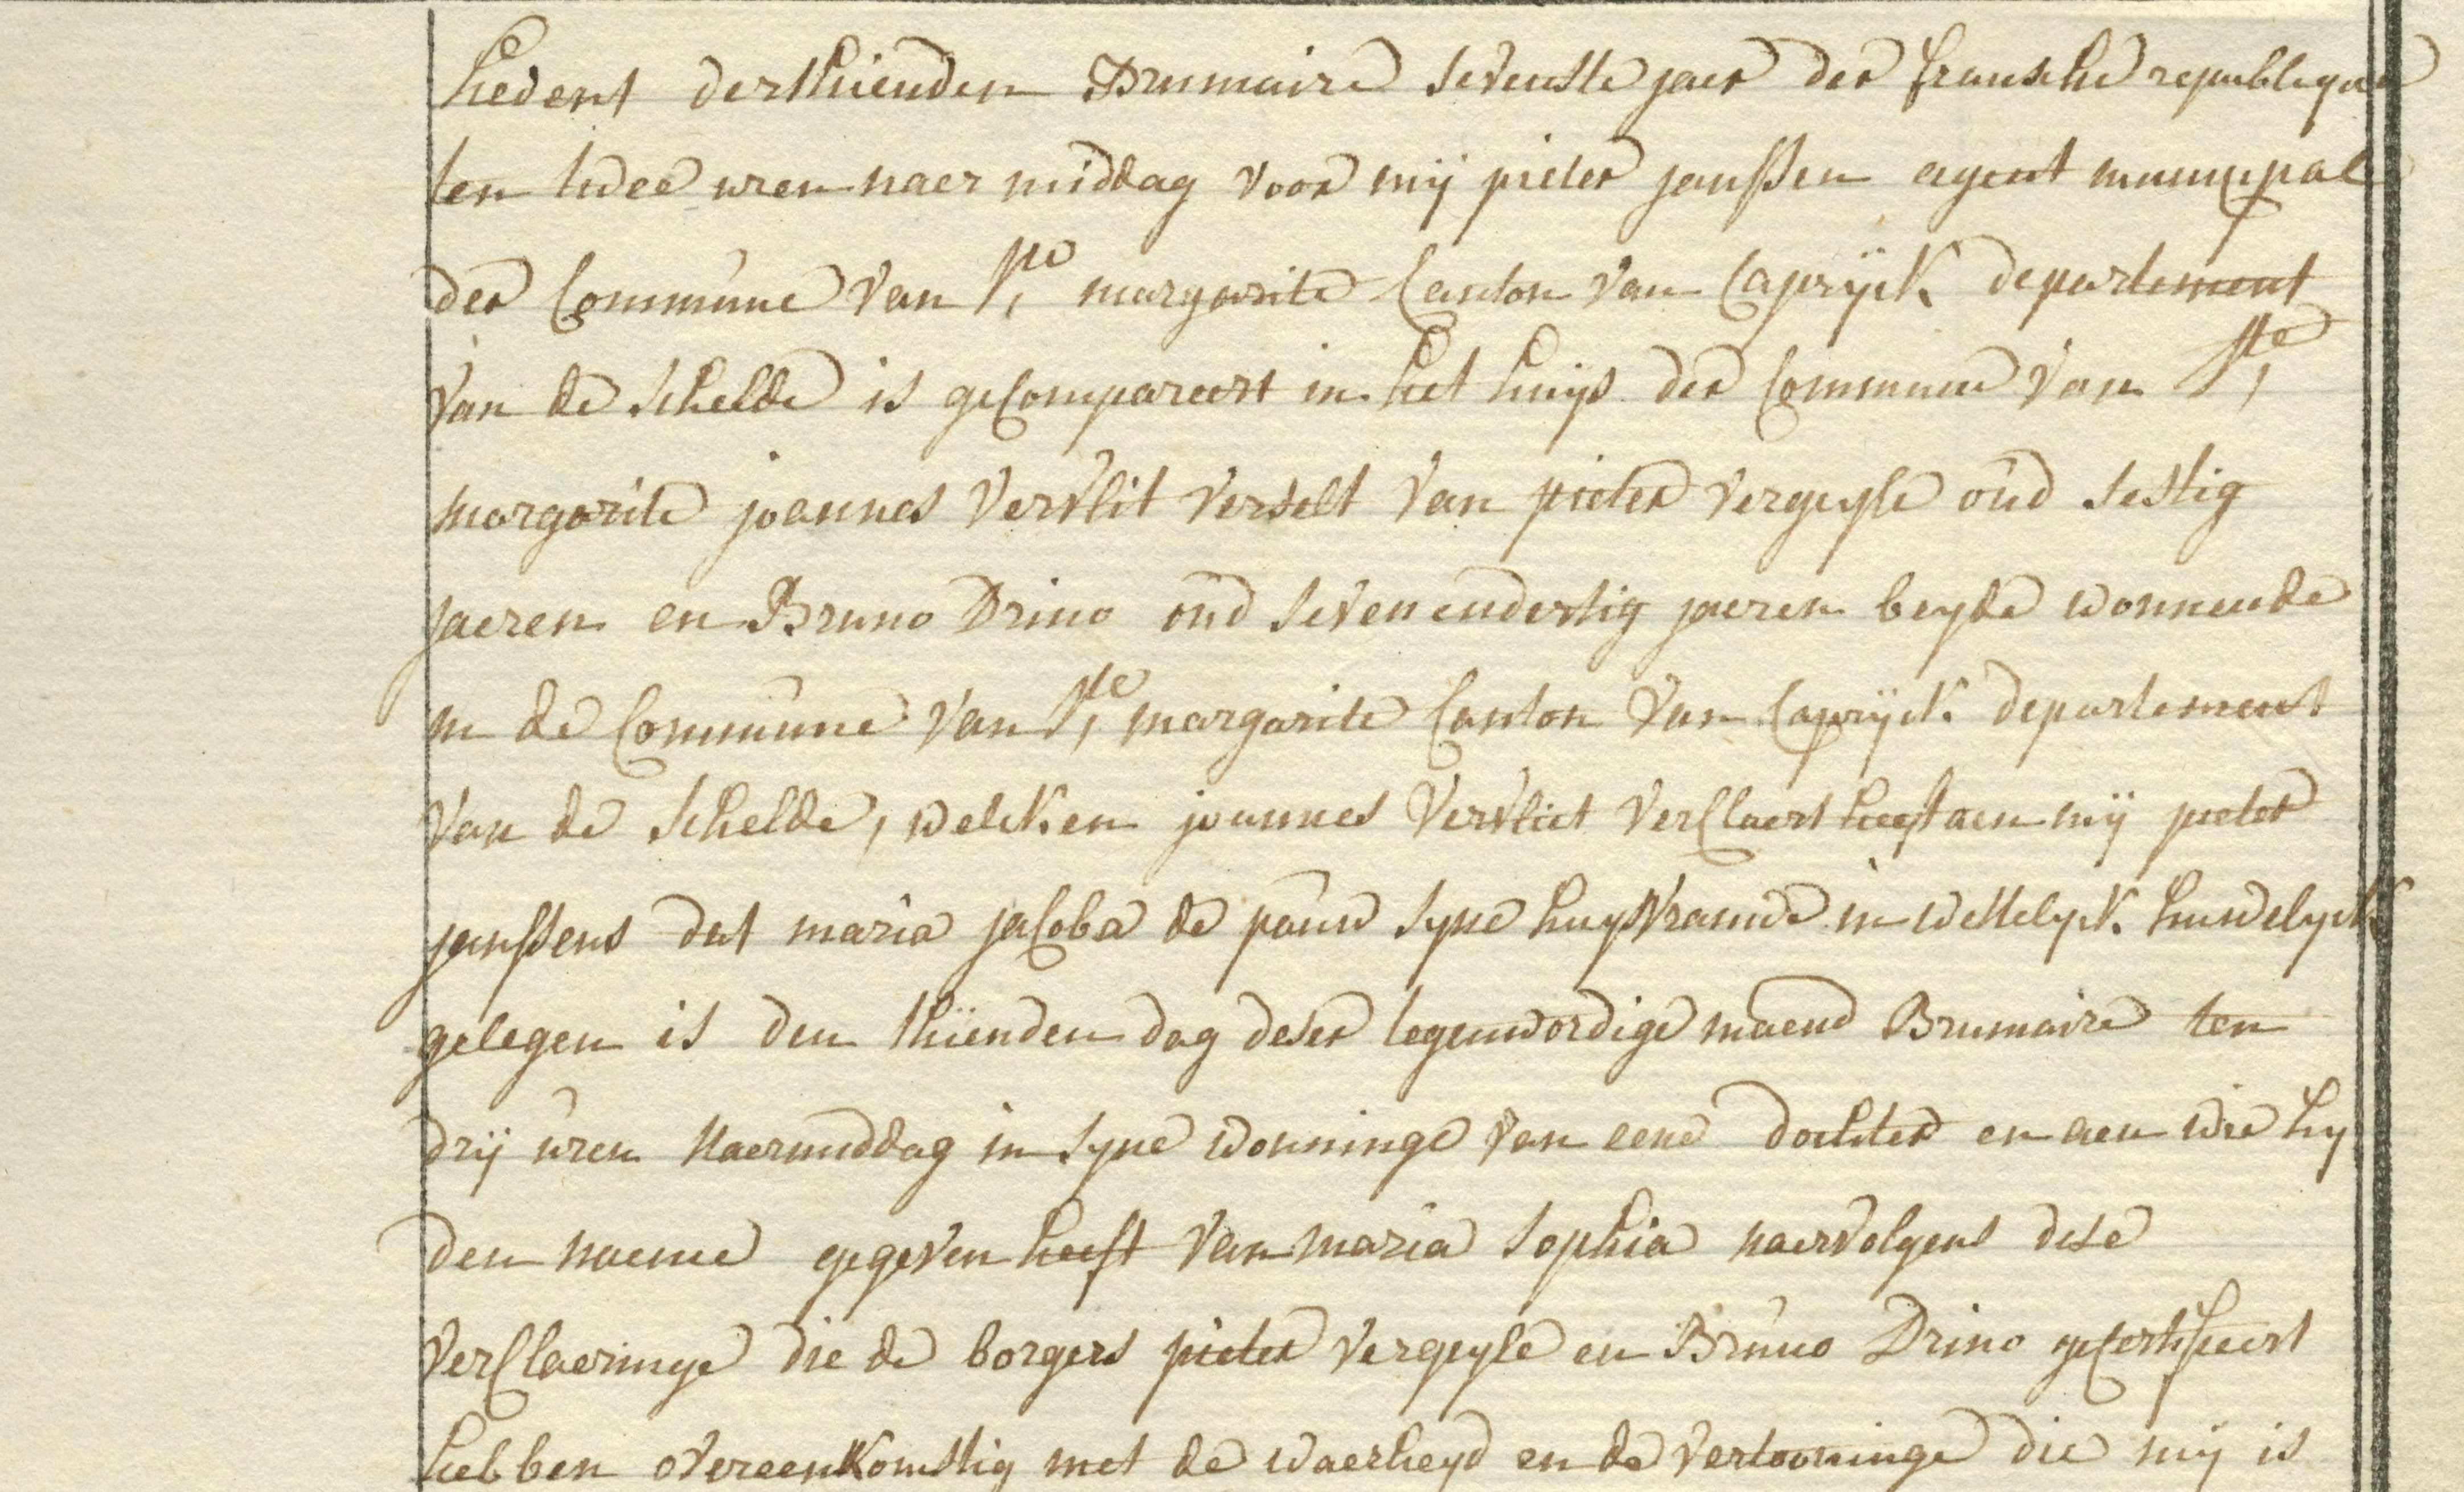 hedent derthienden Brumaire sevenste jaer der fransche republique
ten twee uren naer middag voor mij pieter janssen agent municipal
der Commune van Ste margarite Canton van Caprijck departement
van de schelde is gecompareert in het huijs der Commune van Ste
margarite joannes Vervlit verselt van pieter vergeyle oud sestig
jaeren en Bruno Drino oud sevenendertig jaeren beyde wonnende
in de Commune van Ste margarite Canton van Caprijck departement
van de schelde, welcken joannes Vervliet verClaert heeft aen mij pieter
janssens dat maria jacoba de pauw syne huysvrauwe in wettelyck huwelyck
gelegen is den thienden dag deser tegenwordige maend Brumaire ten
drij uren naermiddag in syne wonninge van eene dochter en aen wie hy
den naeme gegeven heeft van maria sophia naervolgens dese
verClaeringe die de borgers pieter vergeyle en Bruno Drino gecertifieert
hebben overeenkomstig met de waerheyd en de vertooninge die mij is